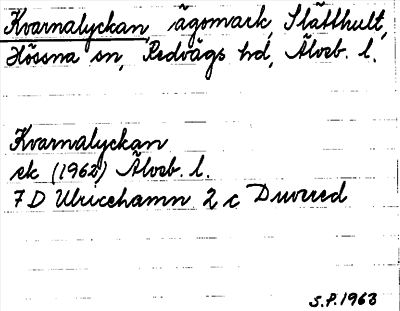 Kvarnalyckan, ägomark, Slätthult,
Hössna sn, Redvägs hd, Älvsb. l.
Kvarnalyckan
ek (1962) Älvsb. l.
7 D Ulricehamn 2 c Duvered
S.P. 1963